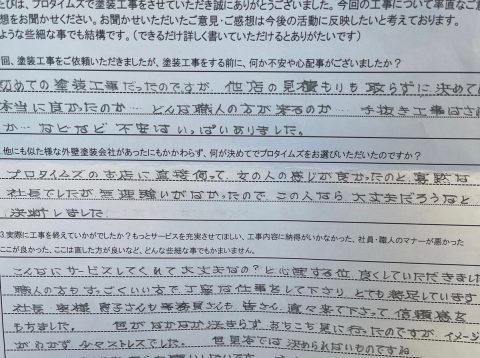 たびは、プロタイムズで塗装工事をさせていただき誠にありがとうございました。今回の工事について率直なご意
想をお聞かせください。お聞かせいただいたご意見・ご感想は今後の活動に反映したいと考えております。
ような些細な事でも結構です。(できるだけ詳しく書いていただけるとありがたいです)
回、塗装工事をご依頼いただきましたが、塗装工事をする前に、何か不安や心配事がございましたか?
初めての塗装工事だったのですが、他店の見積もりも取らずに決めて
本当に良かったのか… どんな職人の方が来るのか… 手抜き工事はさ
か… などなど不安はいっぱいありました。
他にも似た様な外壁塗装会社があったにもかかわらず、何が決めてでプロタイムズをお選びいただいたのですか?
プロタイムズのお店に直接伺って、女の人の感じが良かったのと、寡黙な
社長でしたが無理強いがなかったので、この人なら大丈夫だろうなと
決断しました
3.実際に工事を終えていかがでしたか?もっとサービスを充実させてほしい、工事内容に納得がいかなかった、社員・職人のマナーが悪かった
ここが良かった、ここは直した方が良いなど、どんな些細な事でもかまいません。
こんなにサービスしてくれて大丈夫なの?と心配する位、良くしていただきました
職人の方もすっごくいい方で丁寧な仕事をして下さり、とても満足しています
社長、奥様、息子さんも事務員さんも皆さん、直々来て下って信頼感を
もちました。 色がなかなか決まらず、あちこち見に行ったのですが、イメージ
がわかず、少々ストレスでした。 色見本では決められないものですね